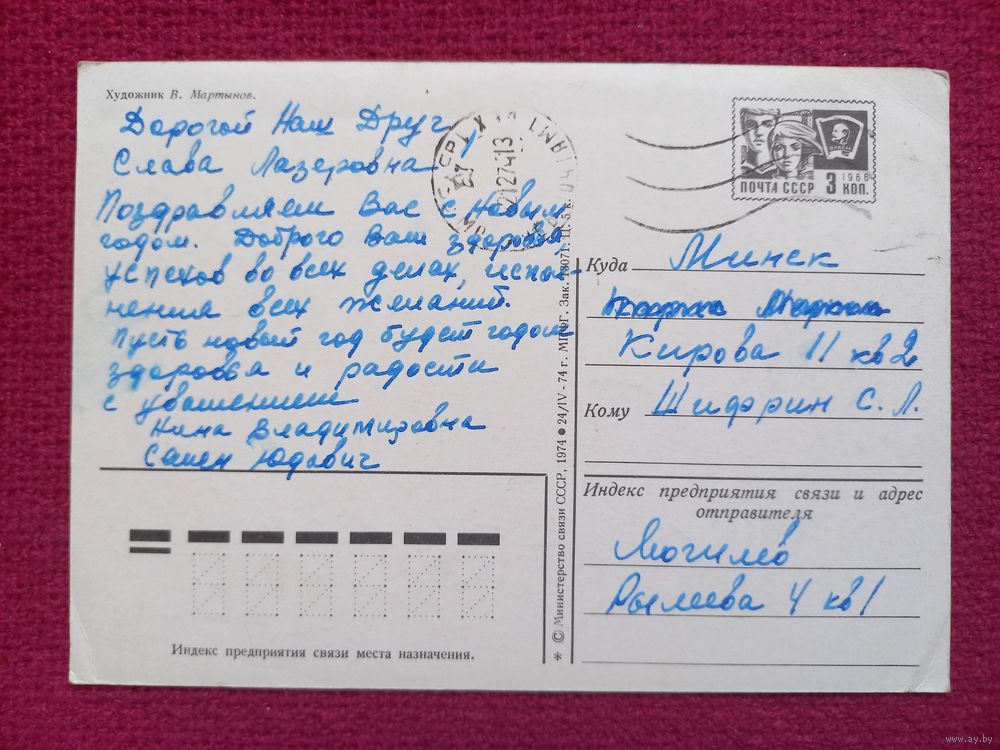 Художник В. Мартынов.
Дорогой Наш Друг,
Слава Лазеровна
Поздравляем Вас с Новым
годом. Доброго Вам здоровья
успехов во всех делах, испол-
нения всех желаний.
Пусть новый год будет годом
здоровья и радости
с уважением
Нина Владимировна
Семен Юдович
ПОЧТА СССР 3 КОП.
1968
ВЛКСМ
Куда Минск
Кирова 11 кв 2
Кому Шифрин С. Л.
Индекс предприятия связи и адрес
отправителя
Могилёв
Рылеева 4 кв 1
Индекс предприятия связи места назначения.
* © Министерство связи СССР, 1974 ● 24/IV-74 г. МПФГ. Зак.
www.ay.by